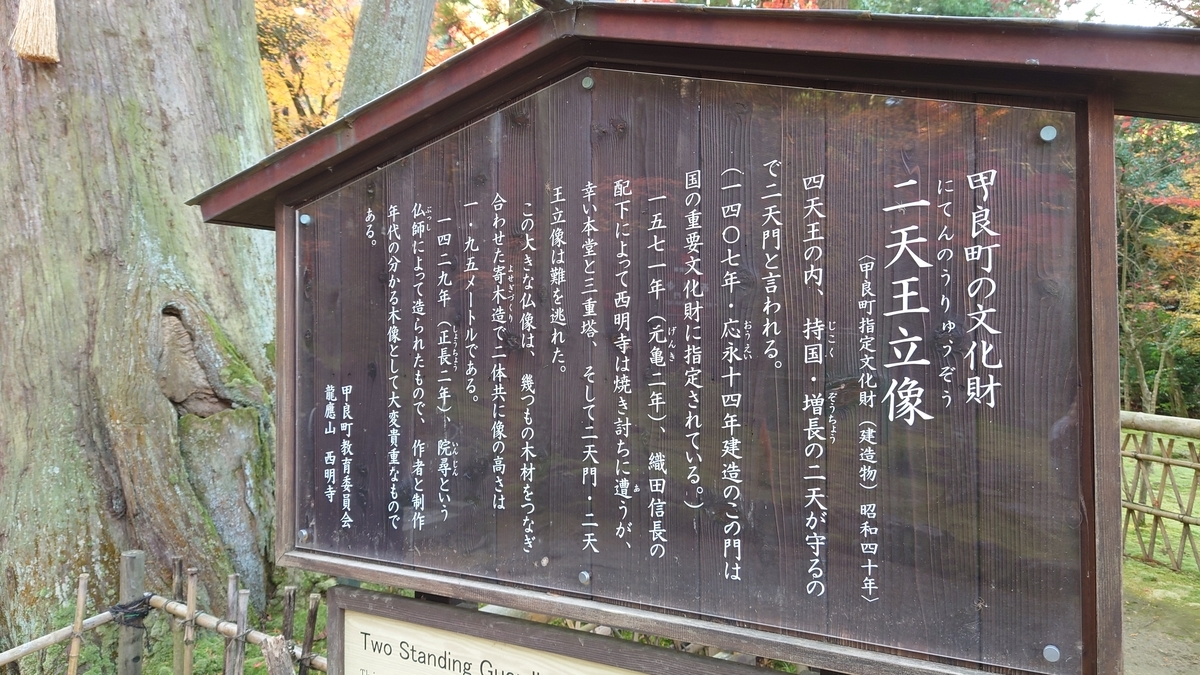 甲良町の文化財
にてんのうりゅうぞう
二天王立像
〈甲良町指定文化財（建造物）昭和四十年〉
四天王の内、持国・増長の二天が守るの
じこく
ぞうちょう
で二天門と言われる。
（一四〇七年・応永十四年建造のこの門は
おうえい
国の重要文化財に指定されている。）
一五七一年（元亀二年）、織田信長の
げんき
配下によって西明寺は焼き討ちに遭うが、
あ
幸い本堂と三重塔、そして二天門・二天
王立像は難を逃れた。
この大きな仏像は、幾つもの木材をつなぎ
合わせた寄木造で二体共に像の高さは
よせぎづくり
一・九五メートルである。
一四二九年（正長二年）、院尋という
しょうちょう
いんじん
仏師によって造られたもので、作者と制作
ぶっし
年代の分かる木像として大変貴重なもので
ある。
甲良町教育委員会
龍應山 西明寺
Two Standing